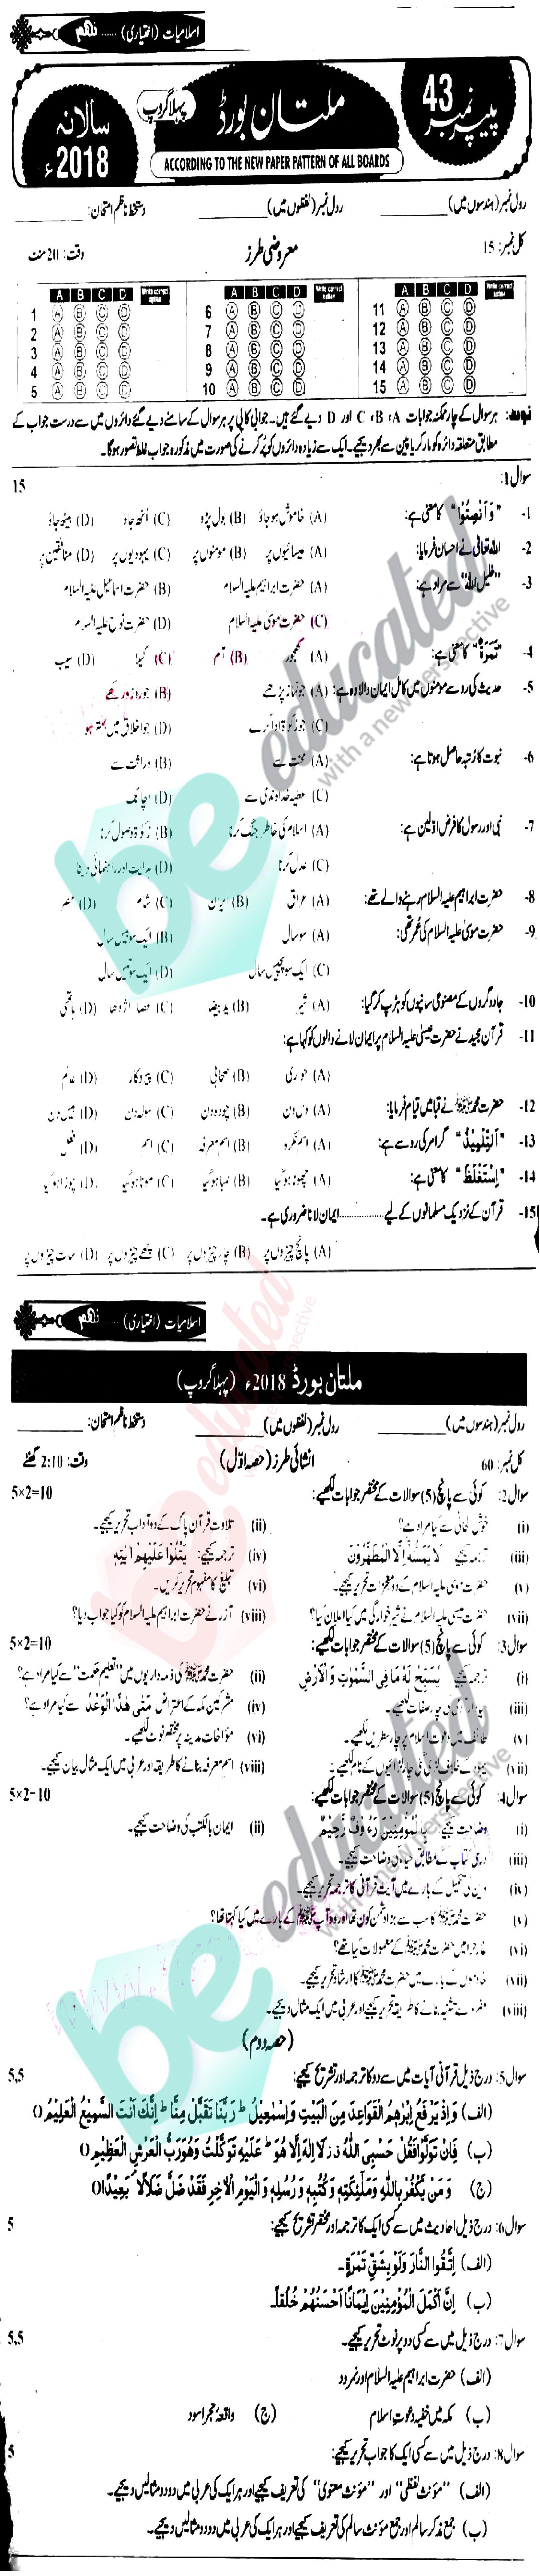 اسلامیات (اختیاری) ...... نہم
پیپر نمبر 43
ملتان بورڈ
پہلا گروپ
سالانہ 2018ء
ACCORDING TO THE NEW PAPER PATTERN OF ALL BOARDS
رول نمبر (ہندسوں میں) ________ رول نمبر (لفظوں میں) ________ دستخط ناظم امتحان: ________
کل نمبر: 15 معروضی طرز وقت: 20 منٹ
A B C D Write correct option A B C D Write correct option A B C D Write correct option
1 A B C D 6 A B C D 11 A B C D
2 A B C D 7 A B C D 12 A B C D
3 A B C D 8 A B C D 13 A B C D
4 A B C D 9 A B C D 14 A B C D
5 A B C D 10 A B C D 15 A B C D
نوٹ: ہر سوال کے چار ممکنہ جوابات A، B، C اور D دیے گئے ہیں۔ جوابی کاپی پر ہر سوال کے سامنے دیے گئے دائروں میں سے درست جواب کے
مطابق متعلقہ دائرہ کو مارکر یا پین سے بھر دیجیے۔ ایک سے زیادہ دائروں کو پُر کرنے کی صورت میں مذکورہ جواب غلط تصور ہوگا۔
سوال 1: 15
1- "وَاَنْصِتُوْا" کا معنی ہے: (A) خاموش ہو جاؤ (B) بول پڑو (C) اُٹھ جاؤ (D) بیٹھ جاؤ
2- اللہ تعالیٰ نے احسان فرمایا: (A) عیسائیوں پر (B) مومنوں پر (C) یہودیوں پر (D) منافقین پر
3- "خلیل اللہ" سے مراد ہے: (A) حضرت ابراہیم علیہ السلام (B) حضرت اسماعیل علیہ السلام
(C) حضرت موسیٰ علیہ السلام (D) حضرت نوح علیہ السلام
4- "تَمْرَۃٌ" کا معنی ہے: (A) کھجور (B) آم (C) کیلا (D) سیب
5- حدیث کی رو سے مومنوں میں کامل ایمان والا وہ ہے: (A) جو نماز پڑھے (B) جو روزہ رکھے
(C) جو زکوٰۃ ادا کرے (D) جو اخلاق میں بہتر ہو
6- نبوت کا رُتبہ حاصل ہوتا ہے: (A) محنت سے (B) وراثت سے
(C) عطیہ خداوندی سے (D) اچانک
7- نبی اور رسول کا فرض اوّلین ہے: (A) اسلام کی خاطر جنگ کرنا (B) زکوٰۃ وصول کرنا
(C) عدل کرنا (D) ہدایت اور راہنمائی دینا
8- حضرت ابراہیم علیہ السلام رہنے والے تھے: (A) عراق (B) ایران (C) شام (D) مصر
9- حضرت موسیٰ علیہ السلام کی عمر تھی: (A) سو سال (B) ایک سو بیس سال
(C) ایک سو پچیس سال (D) ایک سو تیس سال
10- جادوگروں کے مصنوعی سانپوں کو ہڑپ کر گیا: (A) شیر (B) ید بیضا (C) عصا اژدھا (D) ہاتھی
11- قرآن مجید نے حضرت عیسیٰ علیہ السلام پر ایمان لانے والوں کو کہا ہے:
(A) حواری (B) صحابی (C) پیروکار (D) عالم
12- حضرت محمد ﷺ نے قبا میں قیام فرمایا: (A) دس دن (B) چودہ دن (C) سولہ دن (D) بیس دن
13- "اَلتِّلْمِیْذُ" گرامر کی رو سے ہے: (A) اسم نکرہ (B) اسم معرفہ (C) اسم (D) فعل
14- "اِسْتَغْلَظَ" کا معنی ہے: (A) چھوٹا ہو گیا (B) لمبا ہو گیا (C) موٹا ہو گیا (D) چوڑا ہو گیا
15- قرآن کے نزدیک مسلمانوں کے لیے ................ ایمان لانا ضروری ہے۔
(A) پانچ چیزوں پر (B) چار چیزوں پر (C) چھے چیزوں پر (D) سات چیزوں پر
اسلامیات (اختیاری) ...... نہم
ملتان بورڈ 2018ء (پہلا گروپ)
رول نمبر (ہندسوں میں) ________ رول نمبر (لفظوں میں) ________ دستخط ناظم امتحان: ________
کل نمبر: 60 انشائی طرز (حصہ اوّل) وقت: 2:10 گھنٹے
سوال 2: کوئی سے پانچ (5) سوالات کے مختصر جوابات لکھیے: 5×2=10
(i) خوش الحانی سے کیا مراد ہے؟ (ii) تلاوت قرآن پاک کے دو آداب تحریر کیجیے۔
(iii) ترجمہ کیجیے لَا یَمَسُّہٗ اِلَّا الْمُطَهَّرُوْنَ (iv) ترجمہ کیجیے: یَتْلُوْا عَلَیْهِمْ اٰیٰتِهٖ
(v) حضرت موسیٰ علیہ السلام کے دو معجزات تحریر کیجیے۔ (vi) تبلیغ کا مفہوم تحریر کریں۔
(vii) حضرت عیسیٰ علیہ السلام نے شیر خوارگی میں کیا اعلان کیا؟ (viii) آزر نے حضرت ابراہیم علیہ السلام کو کیا جواب دیا؟
سوال 3: کوئی سے پانچ (5) سوالات کے مختصر جوابات لکھیے: 5×2=10
(i) ترجمہ کیجیے یُسَبِّحُ لَهٗ مَا فِی السَّمٰوٰتِ وَالْاَرْضِ (ii) حضرت محمد ﷺ کی ذمہ داریوں میں "تعلیم حکمت" سے کیا مراد ہے؟
(iii) چار صفات لکھیے۔ (iv) مشرکین مکہ کے اعتراض مَتٰی هٰذَا الْوَعْدُ سے کیا مراد ہے؟
(v) طائف میں دعوت اسلام پر چار سطریں لکھیے۔ (vi) مؤاخات مدینہ پر مختصر نوٹ لکھیے۔
(vii) کے خلاف لڑی گئی چار لڑائیوں کے نام لکھیے۔ (viii) اسم معرفہ بنانے کا طریقہ اور عربی میں ایک مثال بیان کیجیے۔
سوال 4: کوئی سے پانچ (5) سوالات کے مختصر جوابات لکھیے: 5×2=10
(i) وضاحت کیجیے بِالْمُؤْمِنِیْنَ رَءُوْفٌ رَّحِیْمٌ (ii) ایمان بالکتب کی وضاحت کیجیے۔
(iii) درسی کتاب کے مطابق وضاحت کیجیے۔
(iv) دین کی تکمیل کے بارے میں آیت قرآنی کا ترجمہ تحریر کیجیے۔
(v) حضرت محمد ﷺ کا سب سے بڑا دشمن کون تھا اور وہ آپ ﷺ کے بارے میں کیا کہتا تھا؟
(vi) غار حرا میں حضرت محمد ﷺ کے معمولات کیا تھے؟
(vii) خادموں کے بارے میں حضرت محمد ﷺ کا ارشاد تحریر کیجیے۔
(viii) مفرد سے تثنیہ بنانے کا طریقہ تحریر کیجیے اور عربی میں ایک مثال دیجیے۔
(حصہ دوم)
سوال 5: درج ذیل قرآنی آیات میں سے دو کا ترجمہ اور تشریح کیجیے: 5,5
(الف) وَاِذْ یَرْفَعُ اِبْرٰهٖمُ الْقَوَاعِدَ مِنَ الْبَیْتِ وَاِسْمٰعِیْلُ ط رَبَّنَا تَقَبَّلْ مِنَّا ط اِنَّكَ اَنْتَ السَّمِیْعُ الْعَلِیْمُ ○
(ب) فَاِنْ تَوَلَّوْا فَقُلْ حَسْبِیَ اللّٰهُ لَا اِلٰهَ اِلَّا هُوَ ط عَلَیْهِ تَوَكَّلْتُ وَهُوَ رَبُّ الْعَرْشِ الْعَظِیْمِ ○
(ج) وَمَنْ یَّكْفُرْ بِاللّٰهِ وَمَلٰٓئِكَتِهٖ وَكُتُبِهٖ وَرُسُلِهٖ وَالْیَوْمِ الْاٰخِرِ فَقَدْ ضَلَّ ضَلٰلًاۢ بَعِیْدًا ○
سوال 6: درج ذیل احادیث میں سے کسی ایک کا ترجمہ اور مختصر تشریح کیجیے: 5
(الف) اِتَّقُوا النَّارَ وَلَوْ بِشِقِّ تَمْرَةٍ۔
(ب) اِنَّ اَكْمَلَ الْمُؤْمِنِیْنَ اِیْمَانًا اَحْسَنُهُمْ خُلُقًا۔
سوال 7: درج ذیل میں سے کسی دو پر نوٹ تحریر کیجیے۔ 5,5
(الف) حضرت ابراہیم علیہ السلام اور نمرود
(ب) مکہ میں خفیہ دعوت اسلام (ج) واقعہ حجر اسود
سوال 8: درج ذیل میں سے کسی ایک کا جواب تحریر کیجیے: 5
(الف) "مؤنث لفظی" اور "مؤنث معنوی" کی تعریف کیجیے اور ہر ایک کی عربی میں دو دو مثالیں دیجیے۔
(ب) جمع مذکر سالم اور جمع مؤنث سالم کی تعریف کیجیے اور ہر ایک کی عربی میں دو دو مثالیں دیجیے۔
be educated
with a new perspective